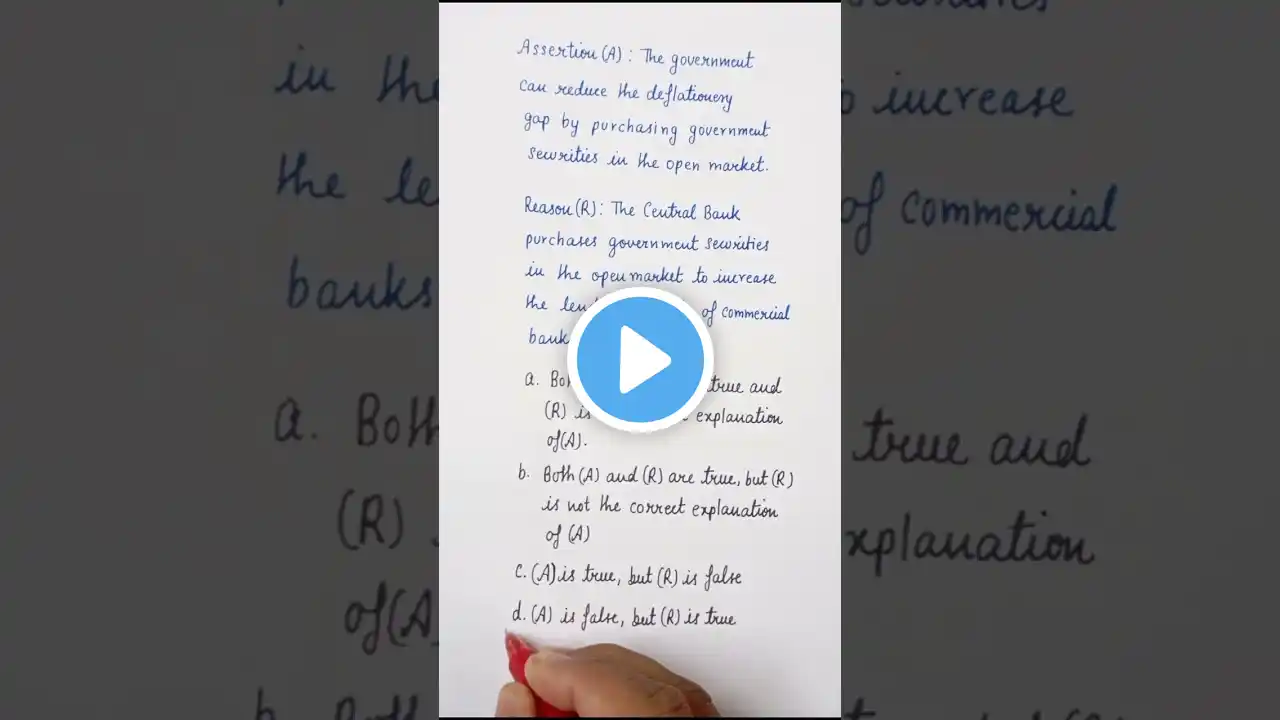 Assertion (A) : The government
can reduce the deflationery
gap by purchasing government
securities in the open market.
Reason (R) : The Central Bank
purchases government securities
in the open market to increase
the of commercial
a. true and
(R) is explanation
of (A).
b. Both (A) and (R) are true, but (R)
is not the correct explanation
of (A)
c. (A) is true, but (R) is false
d. (A) is false, but (R) is true